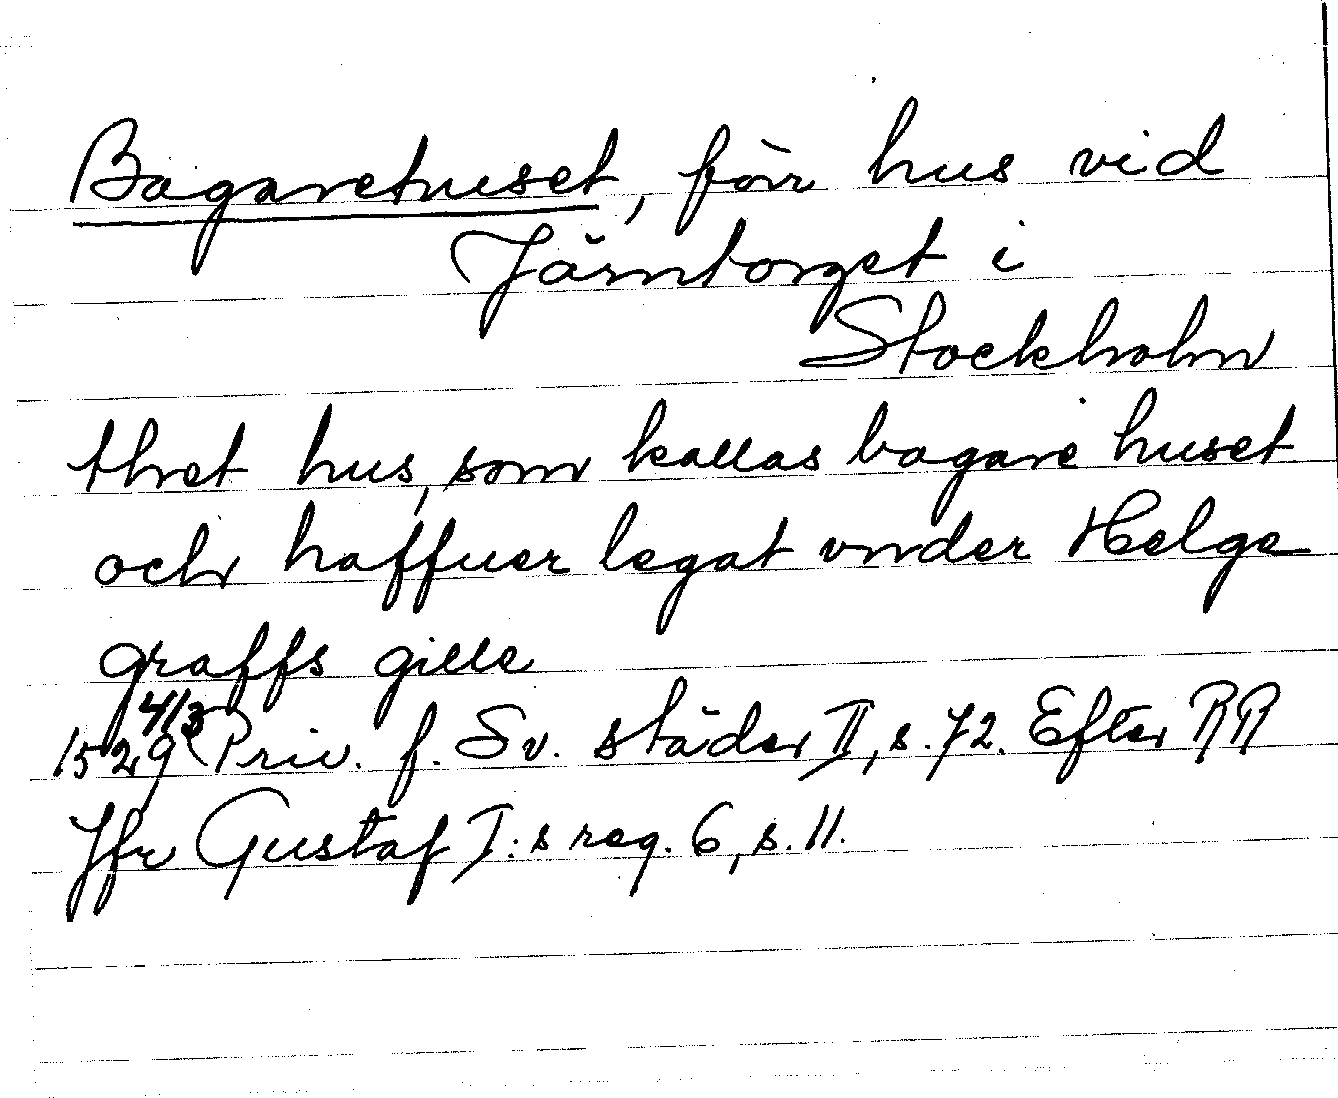 Bagarehuset, förr hus vid
Järntorget i
Stockholm
thet hus, som kallas bagare huset
och haffuer legat vnder Helge
graffs gille
1529 4/3 Priv. f. Sv. städer II, s. 72. Efter RR
Jfr Gustaf I:s reg. 6, s. 11.